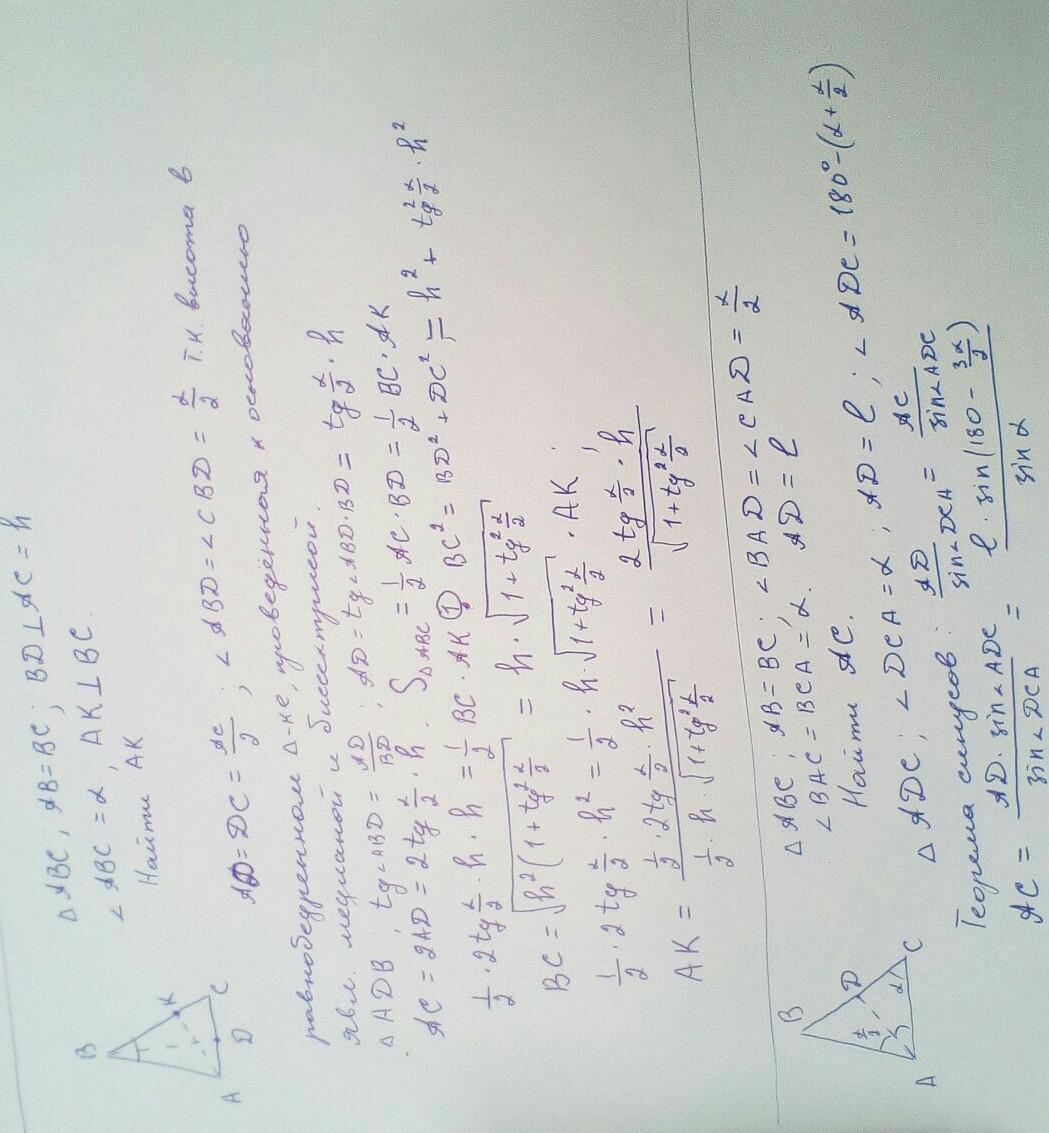 B
K
A
D
C
△ABC; AB=BC; BD⊥AC = h
∠ABC = α; AK⊥BC.
Найти AK
AD=DC = AC/2; ∠ABD=∠CBD = α/2 т.к. высота в
равнобедренном △-ке, проведённая к основанию
явл. медианой и биссектрисой.
△ADB; tg∠ABD = AD/BD; AD = tg∠ABD·BD = tg α/2 · h
AC = 2AD = 2tg α/2 · h. S△ABC = 1/2 AC·BD = 1/2 BC·AK
1/2 · 2tg α/2 · h · h = 1/2 BC·AK ① BC² = BD² + DC² = h² + tg² α/2 · h²
BC = √(h²(1+tg² α/2)) = h·√(1+tg² α/2)
1/2 · 2tg α/2 · h² = 1/2 · h·√(1+tg² α/2) · AK;
AK = (1/2 · 2tg α/2 · h²)/(1/2 · h · √(1+tg² α/2)) = (2tg α/2 · h)/√(1+tg² α/2)
B
D
A
C
α/2
α
△ABC; AB=BC; ∠BAD=∠CAD = α/2
∠BAC = BCA = α. AD = l
Найти AC.
△ADC; ∠DCA = α; AD = l; ∠ADC = 180°-(α+α/2)
Теорема синусов: AD/sin∠DCA = AC/sin∠ADC
AC = (AD·sin∠ADC)/(sin∠DCA) = (l · sin(180 - 3α/2))/(sin α)